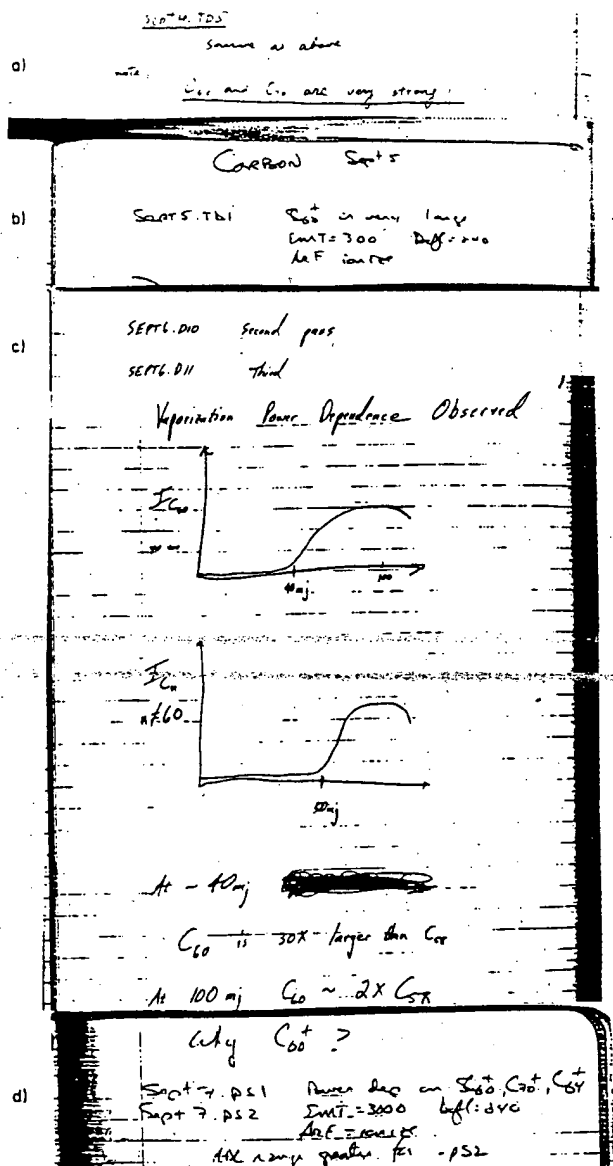 a)
Sept 4. TD5
Same as above
note:
C60 and C70 are very strong!
CARBON Sept 5
b)
SEPT5.TD1 C60+ is very large
EMT=300 Defl=240
ArF ionize
c)
SEPT6.D10 Second pass
SEPT6.D11 Third
Vaporization Power Dependence Observed
I C60
40mj 100
I Cn
n≠60
50mj
At ~ 40mj
C60 is 30X larger than C58
At 100 mj C60 ~ 2X C58
Why C60+ ?
d)
Sept 7. PS1 Power dep on C60+, C70+, C64+
Sept 7. PS2 EMT=3000 Defl=240
ArF
range greater for .PS2